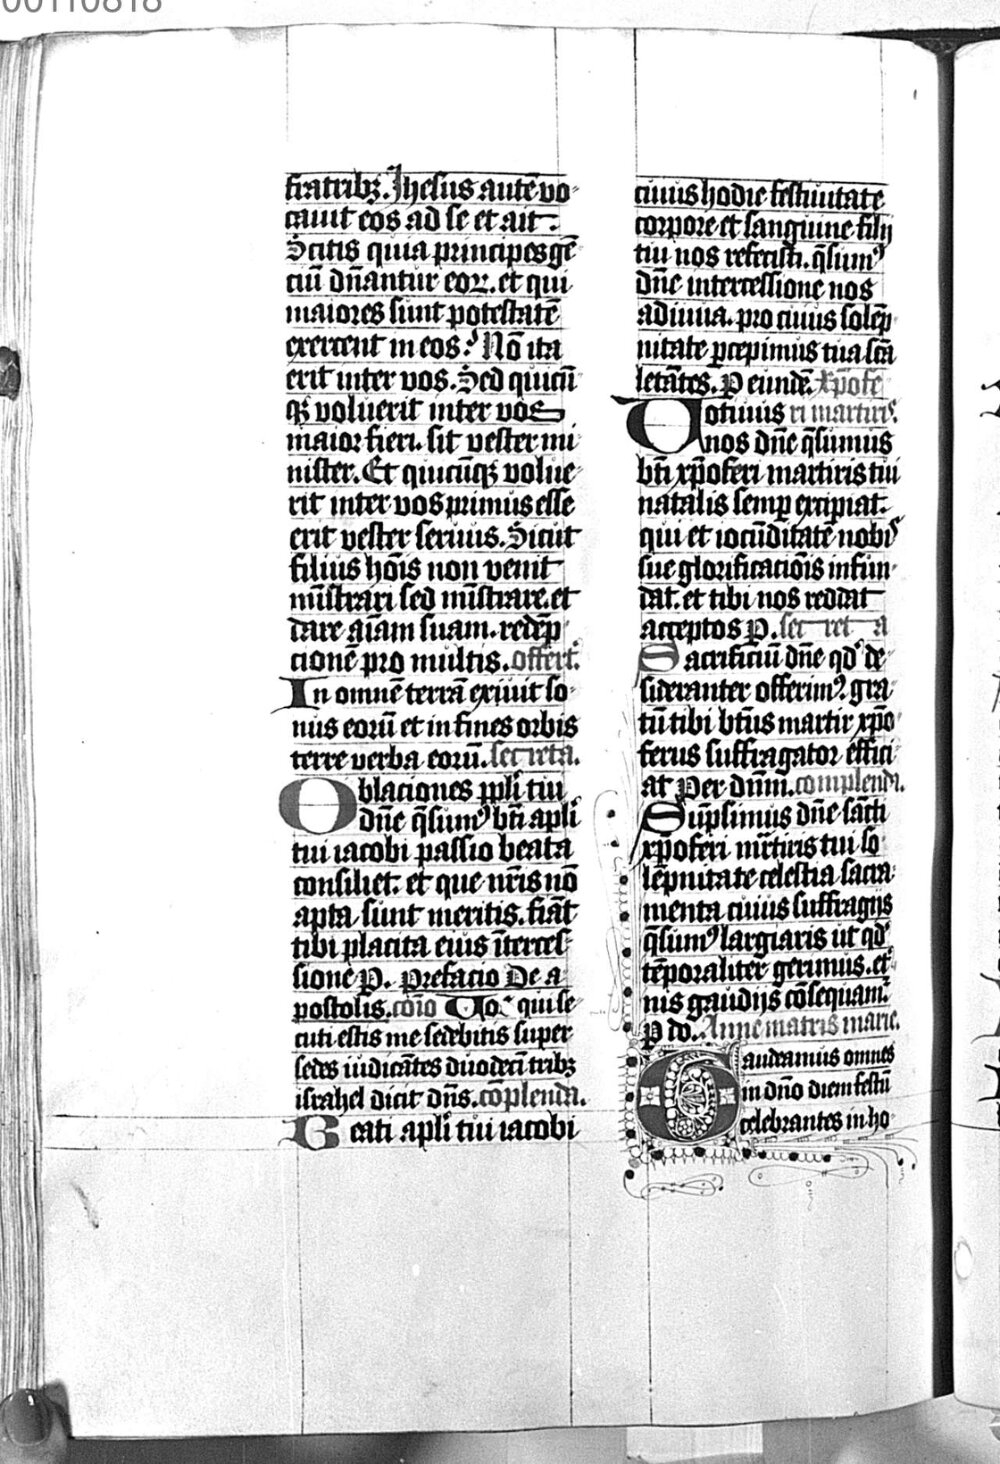 00110818
fratribꝫ. Jhesus autē vo-
cauit eos ad se et ait.
Scitis quia principes gē
ciū dn̄antur eoꝝ. et qui
maiores sunt potestatē
exercent in eos. Nō ita
erit inter vos. Sed quicū
qꝫ voluerit inter vos
maior fieri. sit vester mi
nister. Et quicūqꝫ volue-
rit inter vos primus esse
erit vester seruus. Sicut
filius hōis non venit
mīstrari sed mīstrare. et
dare aīam suam. redēp-
cionē pro multis. offert.
In omnē terrā exiuit so-
nus eorū et in fines orbis
terre verba eorū. secreta.
Oblaciones ppli tui
dn̄e q̄sumꝰ bt̄i apl̄i
tui iacobi passio beata
consiliet. et que nr̄is nō
apta sunt meritis. fiāt
tibi placita eius īterces-
sione P. Prefacio De a
postolis. cōio Uos qui se-
cuti estis me sedebitis super
sedes iudicātes duodecī tribꝫ
israhel dicit dn̄s. cōplenda.
Beati apl̄i tui iacobi
cuius hodie festiuitate
corpore et sanguine filij
tui nos refecisti. q̄sumꝰ
dn̄e intercessione nos
adiuua. pro cuius solēp-
nitate ꝑcepimus tua scā
letātes. P eundē. xp̄ofe
Uotiuus ri martiris.
nos dn̄e q̄sumus
bt̄i xp̄oferi martiris tui
natalis semꝑ excipiat.
qui et iocūditatē nobis
sue glorificacōis infun-
dat. et tibi nos reddat
acceptos P. secreta
Sacrificiū dn̄e qd̄ de-
sideranter offerimꝰ. gra-
tū tibi bt̄us martir xp̄o
ferus suffragator effici-
at Per dnm̄. complenda.
Supsimus dn̄e sācti
xp̄oferi mr̄tiris tui so-
lēpnitate celestia sacra-
menta cuius suffragijs
q̄sumꝰ largiaris ut qd̄
tēporaliter gerimus. et̄
nis gaudijs cōsequam̄.
P do. Anne matris marie.
Gaudeamus omnes
in dn̄o diem festū
celebrantes in ho-